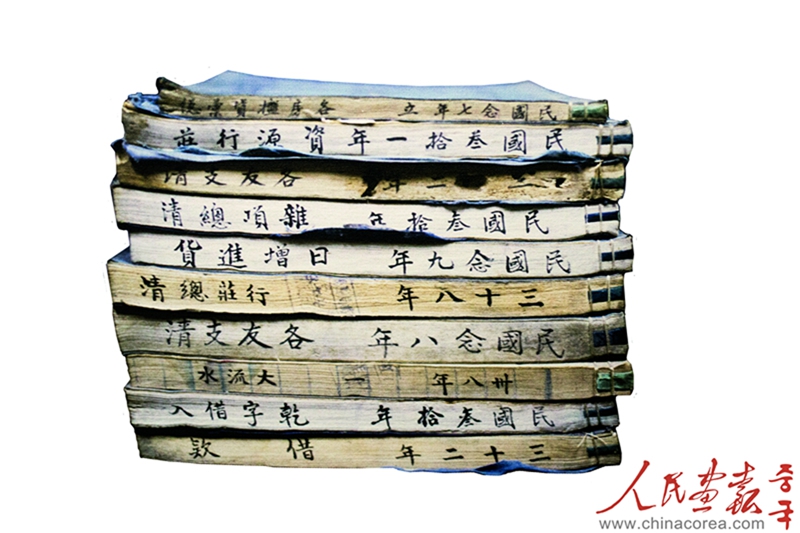 民國念七年立 各房
民國叁拾一年 資源行莊
二年 各友支清
民國叁拾年 雜項總清
民國念九年 日增進貨
三十八年 行莊總清
民國念八年 各友支清
卅八年 一 大流水
民國叁拾年 乾字借入
三十二年 借款
人民画報 중국
www.chinacorea.com